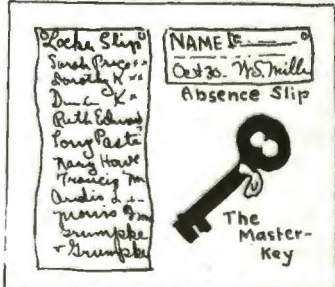 Locke Slip
Sarah Price
Dorothy K
K
Ruth Edward
Tony Paste
Mary Howe
Francis M
Ardis L
Morris
Grumpke
& Grumpke
NAME
Oct 30 - W.S. Mill
Absence Slip
The
Master-
Key